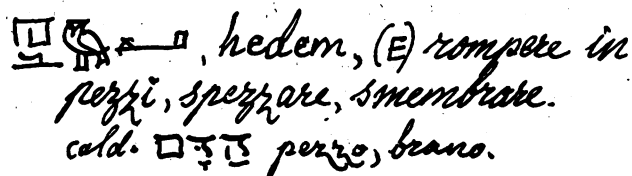 , hedem, (E) rompere in
pezzi, spezzare, smembrare.
cald. הַדָּם pezzo, brano.